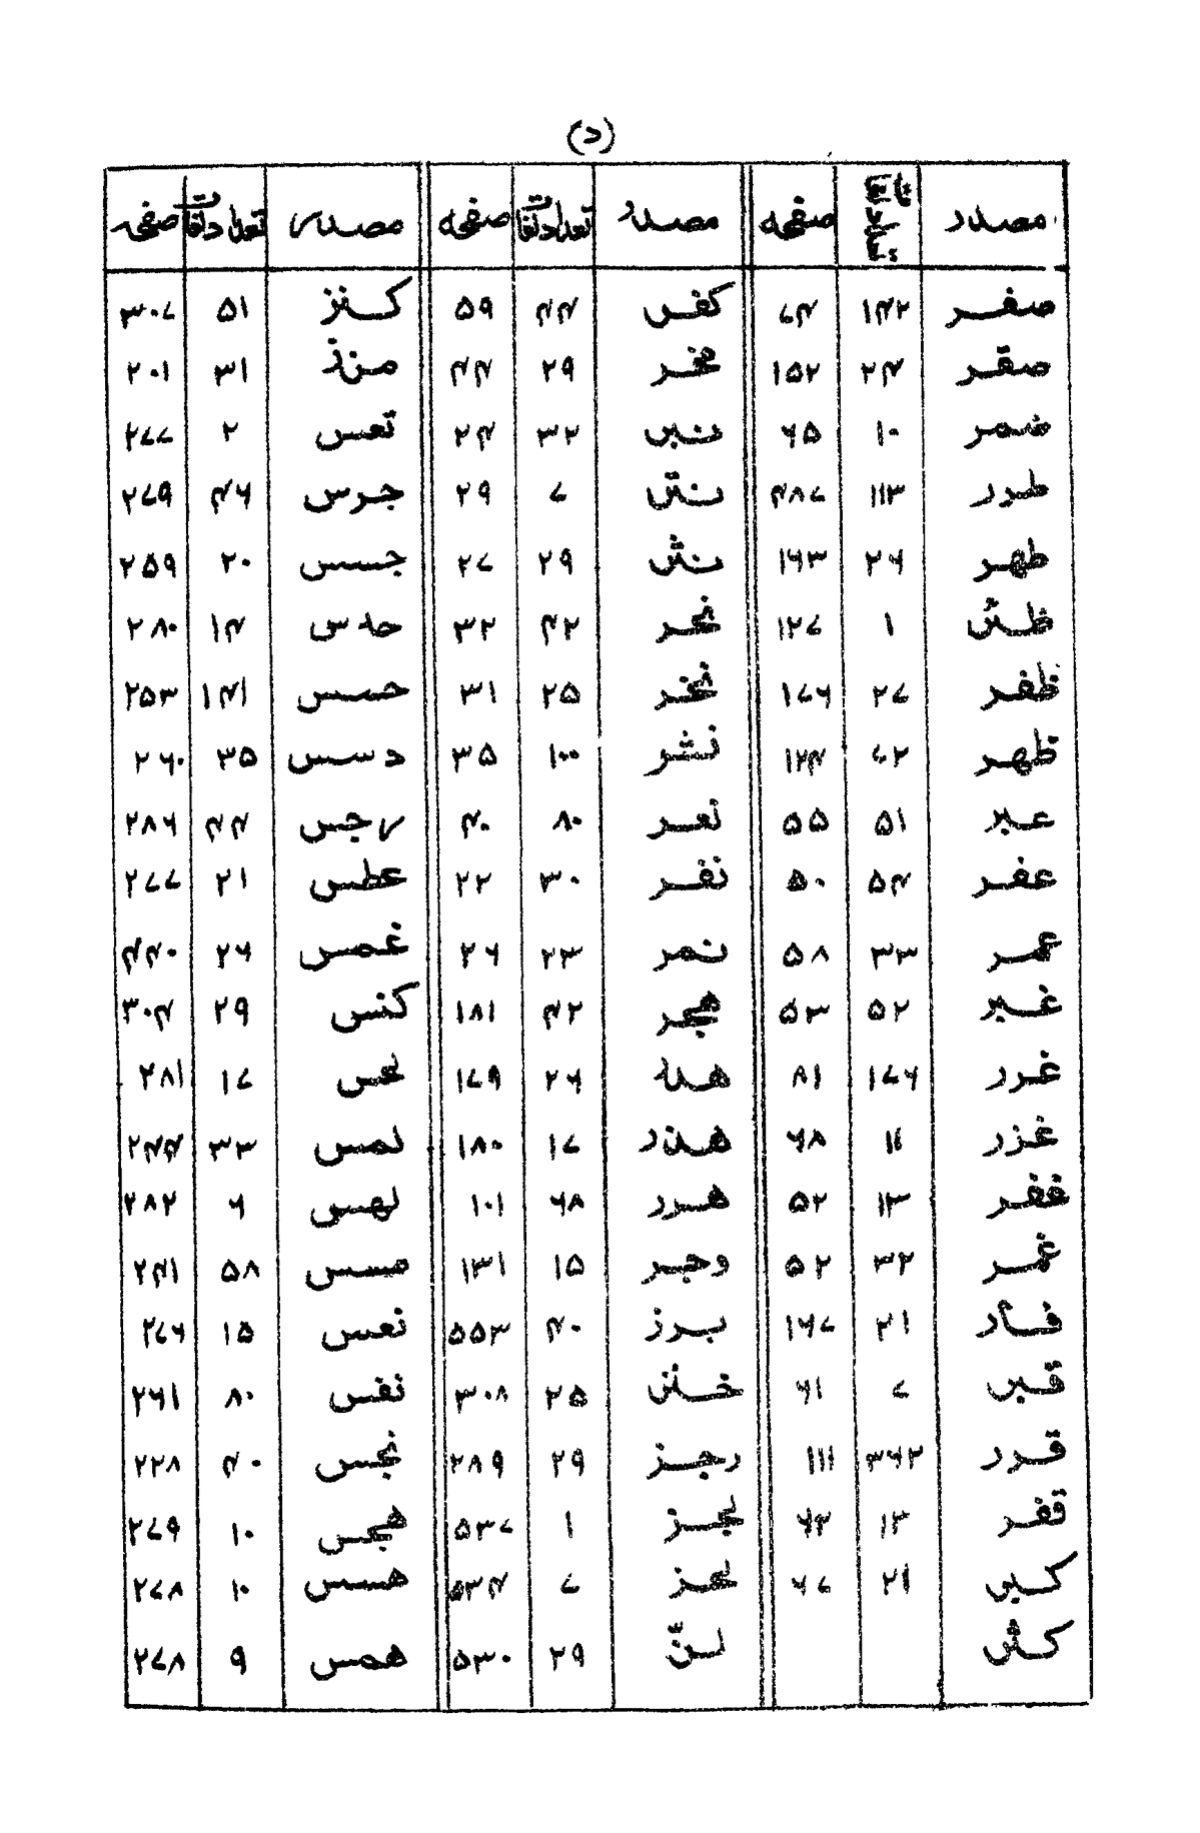 (د)
مصدر تعداد لغات صفحہ مصدر تعداد لغات صفحہ مصدر تعداد لغات صفحہ
صفر ۱۴۲ ۷۴ کفر ۴۴ ۵۹ کنز ۵۱ ۳۰۷
صقر ۲۴ ۱۵۲ مخر ۲۹ ۴۴ منذ ۳۱ ۲۰۱
ضمر ۱۰ ۶۵ نبر ۳۲ ۲۴ تعس ۲ ۲۷۷
طرر ۱۱۳ ۴۸۷ نتر ۷ ۲۹ جرس ۴۶ ۲۷۹
طهر ۲۶ ۱۶۳ نثر ۲۹ ۲۷ جسس ۲۰ ۲۵۹
ظئر ۱ ۱۲۷ نحر ۴۲ ۳۲ حدس ۱۴ ۲۸۰
ظفر ۲۷ ۱۷۶ نخر ۲۵ ۳۱ حسس ۱۴۱ ۲۵۳
ظهر ۷۲ ۱۲۴ نشر ۱۰۰ ۳۵ دسس ۳۵ ۲۶۰
عبر ۵۱ ۵۵ نعر ۸۰ ۴۰ رجس ۴۴ ۲۸۶
عفر ۵۴ ۵۰ نفر ۳۰ ۲۲ عطس ۲۱ ۲۷۷
عمر ۳۳ ۵۸ نمر ۲۳ ۲۶ غمس ۲۶ ۴۴۰
غبر ۵۲ ۵۳ هجر ۴۲ ۱۸۱ کنس ۲۹ ۳۰۴
غرر ۱۷۶ ۸۱ هدر ۲۶ ۱۷۹ لحس ۱۷ ۲۸۱
غزر ۱۱ ۶۸ هذر ۱۷ ۱۸۰ لمس ۳۳ ۲۴۴
غفر ۱۳ ۵۲ هرر ۶۸ ۱۰۱ لهس ۶ ۲۸۲
غمر ۳۲ ۵۲ وجر ۱۵ ۱۳۱ مسس ۵۸ ۲۴۱
فأر ۲۱ ۱۶۷ برز ۴۰ ۵۵۳ نعس ۱۵ ۲۷۶
قبر ۷ ۶۱ خنز ۲۵ ۳۰۸ نفس ۸۰ ۲۶۱
قرر ۳۶۲ ۱۱۱ رجز ۲۹ ۲۸۹ نجس ۴۰ ۲۲۸
قفر ۱۳ ۶۳ لجز ۱ ۵۳۷ هجس ۱۰ ۲۷۹
کبر ۲۱ ۶۷ لحز ۷ ۵۳۴ هسس ۱۰ ۲۷۸
کثر لزّ ۲۹ ۵۳۰ همس ۹ ۲۷۸